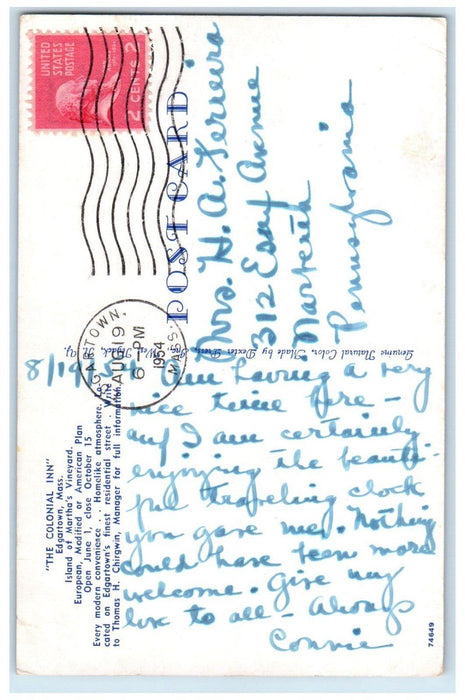 "THE COLONIAL INN"
Edgartown, Mass.
Island of Martha's Vineyard.
European, Modified or American Plan
Open June 1, close October 15
Every modern convenience . . Homelike atmosphere. Lo-
cated on Edgartown's finest residential street . Write
to Thomas H. Chirgwin, Manager for full information.
8/19/54 Am having a very
nice time here -
and I am certainly
enjoying the beauti-
ful traveling clock
you gave me. Nothing
could have been more
welcome. Give my
love to all - Always
Connie
74649
Genuine Natural Color, Made by Dexter Press,
POST CARD
UNITED
STATES
POSTAGE
2 CENTS 2
EDGARTOWN,
AUG 19
6 - PM
1954
MASS.
Mrs. H. A. Ferreira
312 Avenue
Narberth
Pennsylvania